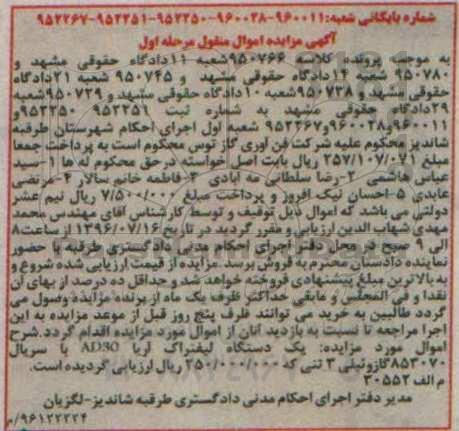 شماره بایگانی شعبه:۹۶۰۰۱۱-۹۶۰۰۲۸-۹۵۲۲۵۰-۹۵۲۲۵۱-۹۵۲۲۶۷
آگهی مزایده اموال منقول مرحله اول
به موجب پرونده کلاسه ۹۵۰۷۶۶شعبه ۱۱دادگاه حقوقی مشهد و
۹۵۰۷۸۰ شعبه ۱۴دادگاه حقوقی مشهد و ۹۵۰۷۴۵ شعبه ۲۱دادگاه
حقوقی مشهد و ۹۵۰۷۲۸ شعبه ۱۰دادگاه حقوقی مشهد و ۹۵۰۷۲۹شعبه
۲۹دادگاه حقوقی مشهد به شماره ثبت ۹۵۲۲۵۱ و۹۵۲۲۵۰و
۹۶۰۰۱۱و۹۶۰۰۲۸و۹۵۲۲۶۷ شعبه اول اجرای احکام شهرستان طرقبه
شاندیز محکوم علیه شرکت فن آوری گاز توس محکوم است به پرداخت جمعا
مبلغ ۲۵۷/۱۰۷/۰۷۱ ریال بابت اصل خواسته درحق محکوم له ها ۱-سید
عباس هاشمی ۲-رضا سلطانی مه آبادی ۳-فاطمه خانم سالار ۴-مرتضی
عابدی ۵-احسان نیک افروز و پرداخت مبلغ ۷/۵۰۰/۰۰۰ ریال نیم عشر
دولتی می باشد که اموال ذیل توقیف و توسط کارشناس آقای مهندس محمد
مهدی شهاب الدین ارزیابی و مقرر گردید در تاریخ ۱۳۹۶/۰۷/۱۶ از ساعت۸
الی ۹ صبح در محل دفتر اجرای احکام مدنی دادگستری طرقبه با حضور
نماینده دادستان محترم به فروش برسد. مزایده از قیمت ارزیابی شده شروع و
به بالاترین مبلغ پیشنهادی فروخته خواهد شد و حداقل ده درصد از بهای آن
نقدا و فی المجلس و مابقی حداکثر ظرف یک ماه از برنده مزایده وصول می
گردد طالبین به خرید می توانند ظرف پنج روز قبل از موعد مزایده به این
اجرا مراجعه تا نسبت به بازدید آنان از اموال مورد مزایده اقدام گردد.شرح
اموال مورد مزایده: یک دستگاه لیفتراک آریا AD30 با سریال
۸۵۳۰۷۰گازوئیلی ۳ تنی که ۲۵۰/۰۰۰/۰۰۰ ریال ارزیابی گردیده است.
م الف ۳۰۵۵۲
مدیر دفتر اجرای احکام مدنی دادگستری طرقبه شاندیز-لگزیان
۹۶۱۲۲۲۲۴/م